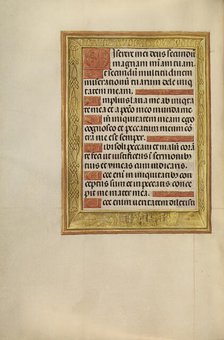 Miserere mei deus secundum
magnam mi͠am tuam.
Et secundum multitudinem
miserationum tuarum dele iniqui
tatem meam.
Amplius laua me ab iniquita
te mea et a peccato meo munda me
Quoniam iniquitatem meam ego
cognosco et peccatum meum con
tra me est semper.
Tibi soli peccaui et malum cora
te feci ut iustificeris in sermonibus
tuis et vincas cum iudicaris.
Ecce enim in iniquitatibus con
ceptus sum et in peccatis conce
pit me mater mea.
Ecce enim veritatem dilexisti